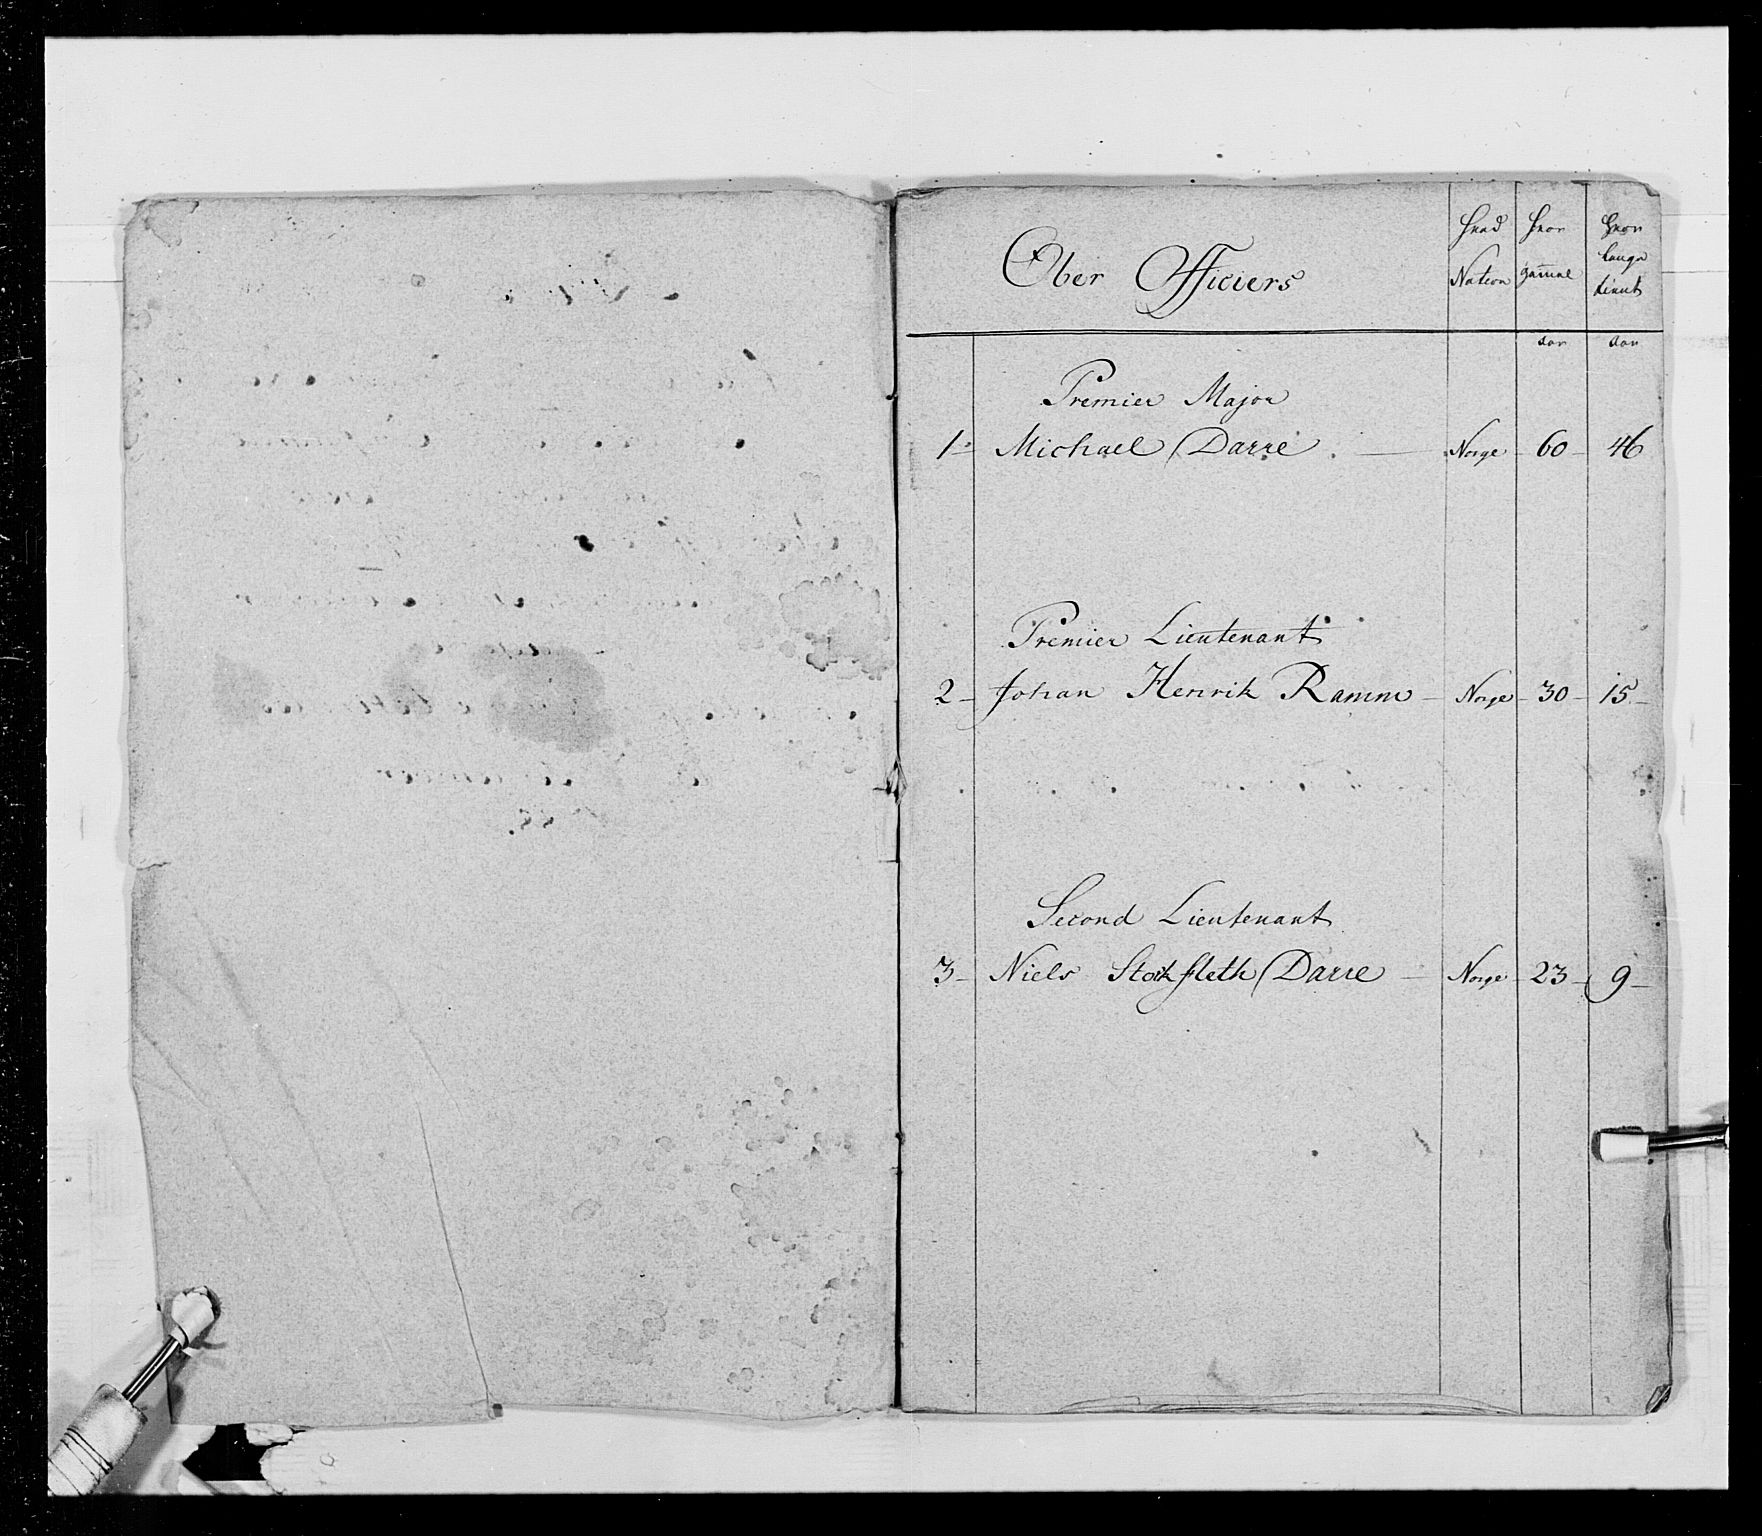 Ober Officiers
Hvad Nation
Hvor gammel
Hvor lange tient
aar
aar
Premier Major
1= Michael Darre. — Norge 60 — 46
Premier Lieutenant
2 — Johan Henrik Ramm — Norge — 30 — 15 —
Second Lieutenant
3 — Niels Stokfleth Darre — Norge — 23 — 9 —